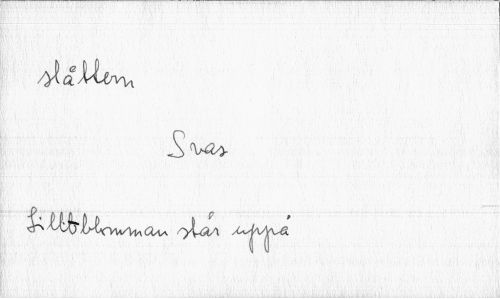 slåttern
Svas
Lillblomman står uppå